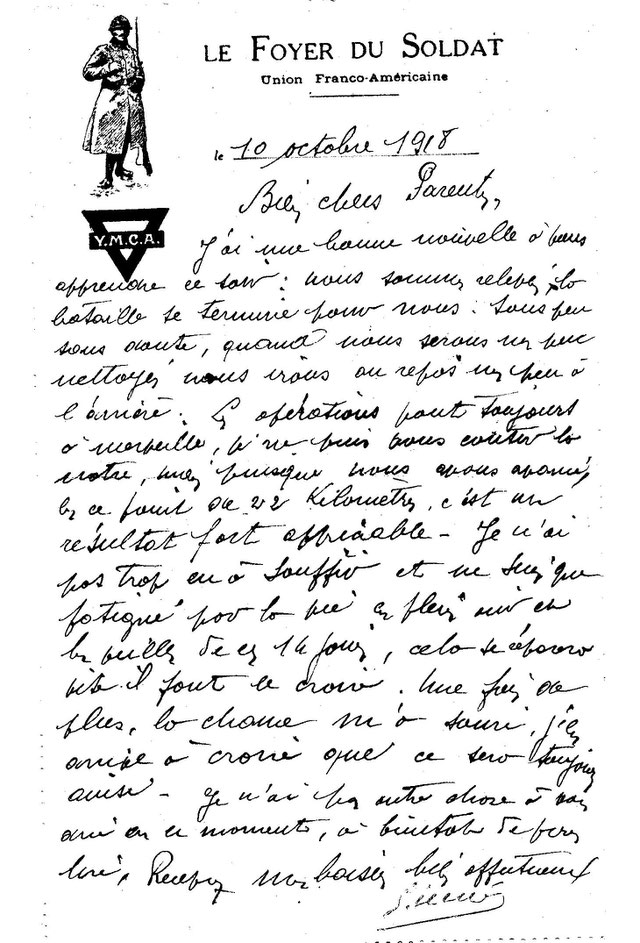 LE FOYER DU SOLDAT
Union Franco-Américaine
le 10 octobre 1918
Y.M.C.A.
Bien chers Parents,
J'ai une bonne nouvelle à vous
apprendre ce soir : nous sommes relevés, la
bataille se termine pour nous. Sous peu
sans doute, quand nous serons un peu
nettoyés nous irons au repos un peu à
l'arrière. Les opérations vont toujours
à merveille, je ne puis vous conter la
notre, mais puisque nous avons avancé
de 22 kilomètres, c'est un
résultat fort appréciable - Je n'ai
pas trop eu à souffrir et ne suis que
fatigué par la vie en plein air et
les veilles de ces 14 jours, cela se réparera
vite il faut le croire. Une fois de
plus, la chance m'a souri, j'en
arrive à croire que ce sera toujours
ainsi - Je n'ai pas autre chose à vous
dire en ce moment, à bientôt de vous
lire. Recevez mes baisers bien affectueux